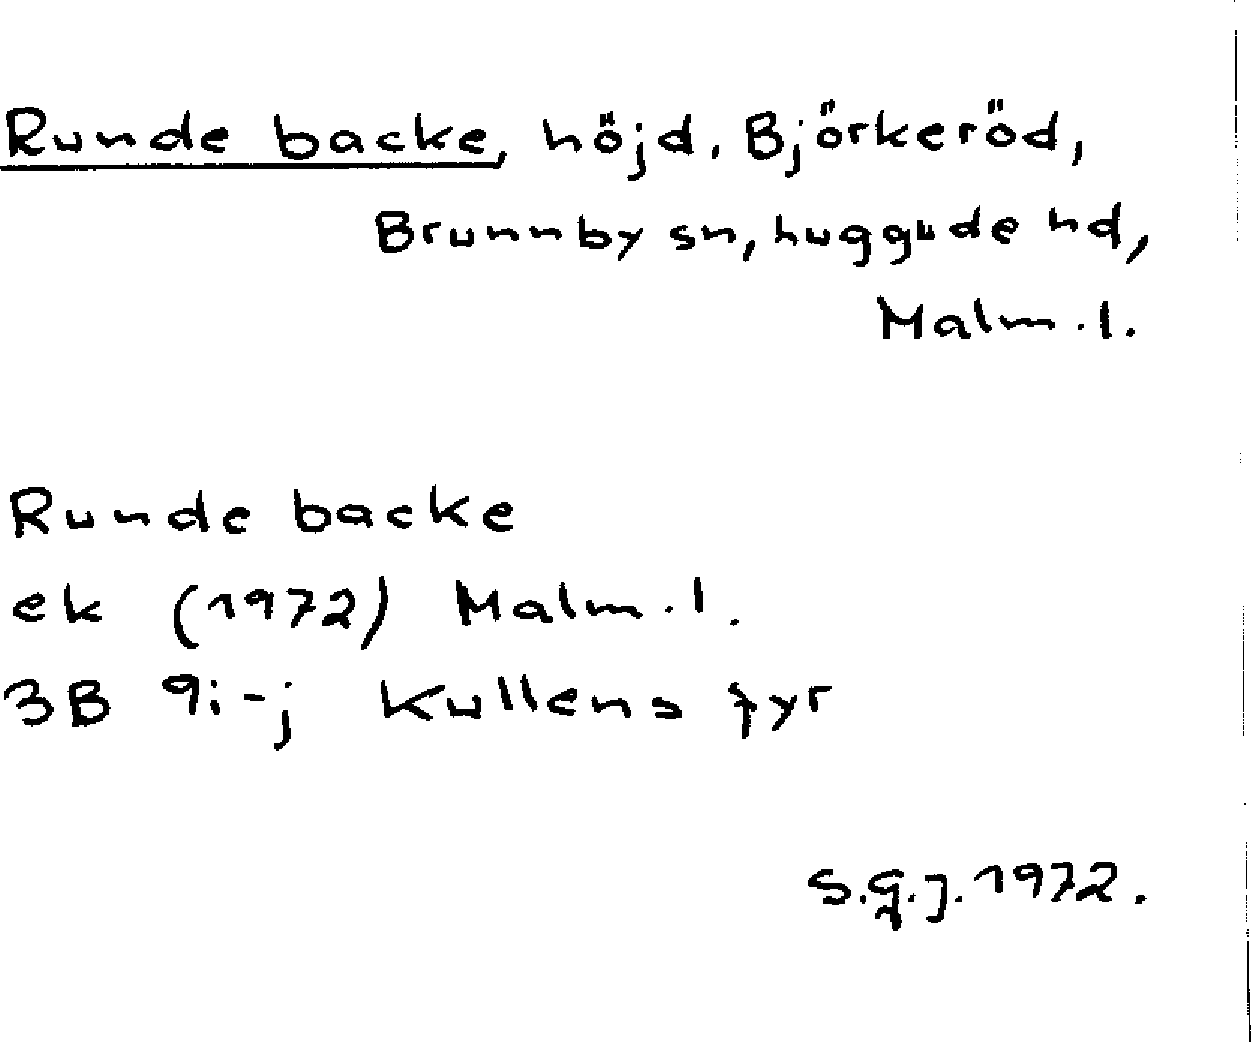 Runde backe, höjd. Björkeröd,
Brunnby sn, huggude hd,
Malm. l.
Runde backe
ek (1972) Malm. l.
3B 9i-j Kullens fyr
S.G.J. 1972.